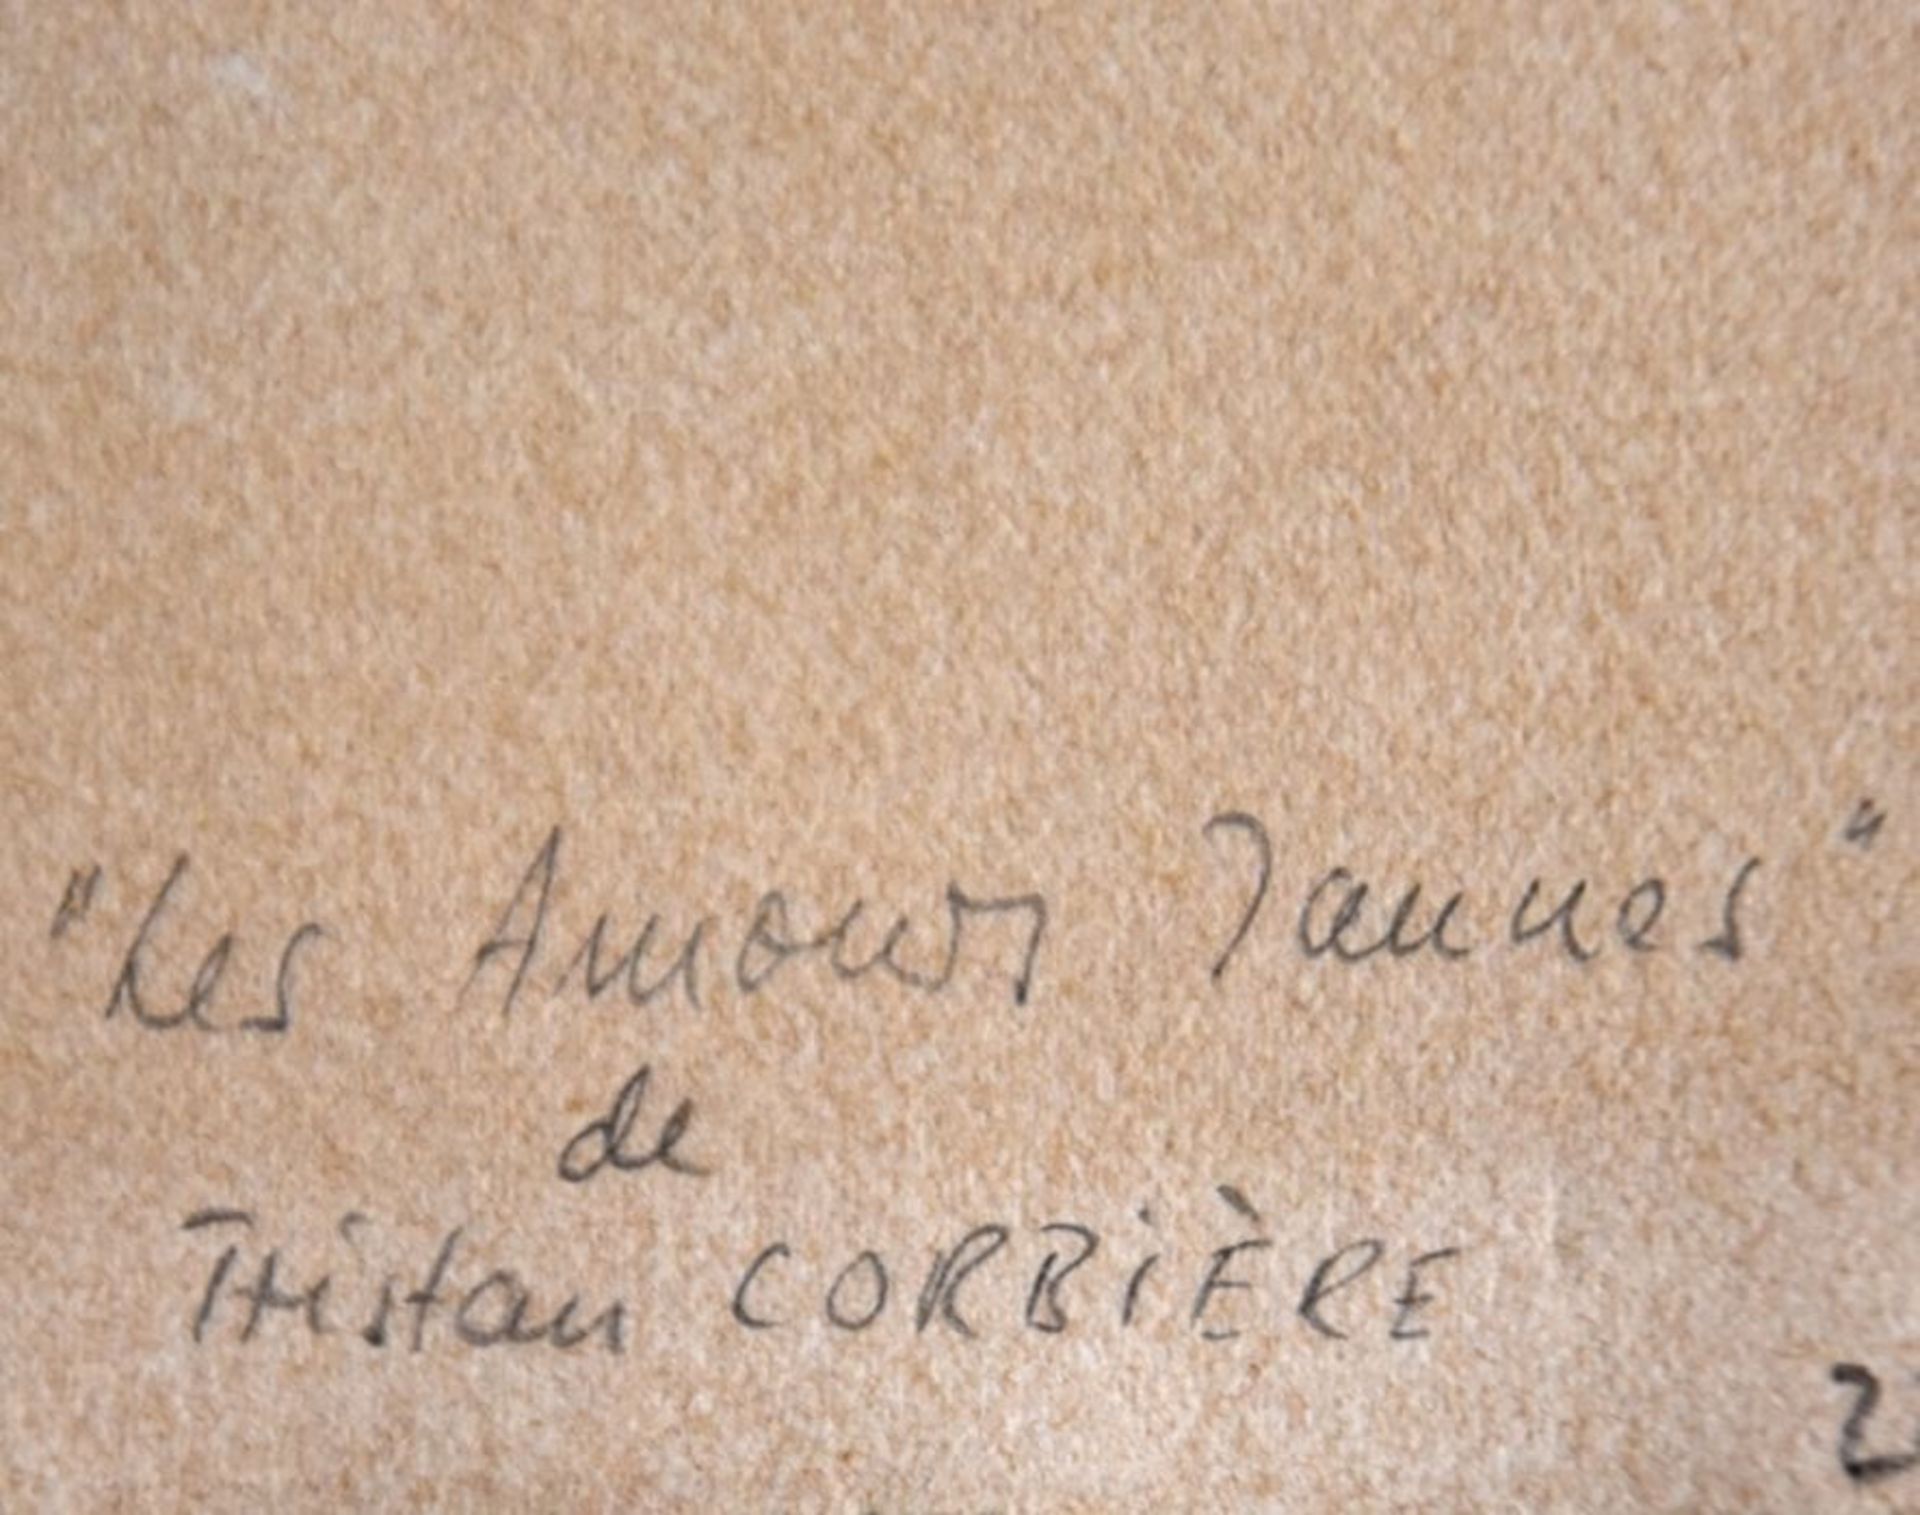 "Les Amours Jaunes"
de
Tristan CORBIÈRE
2